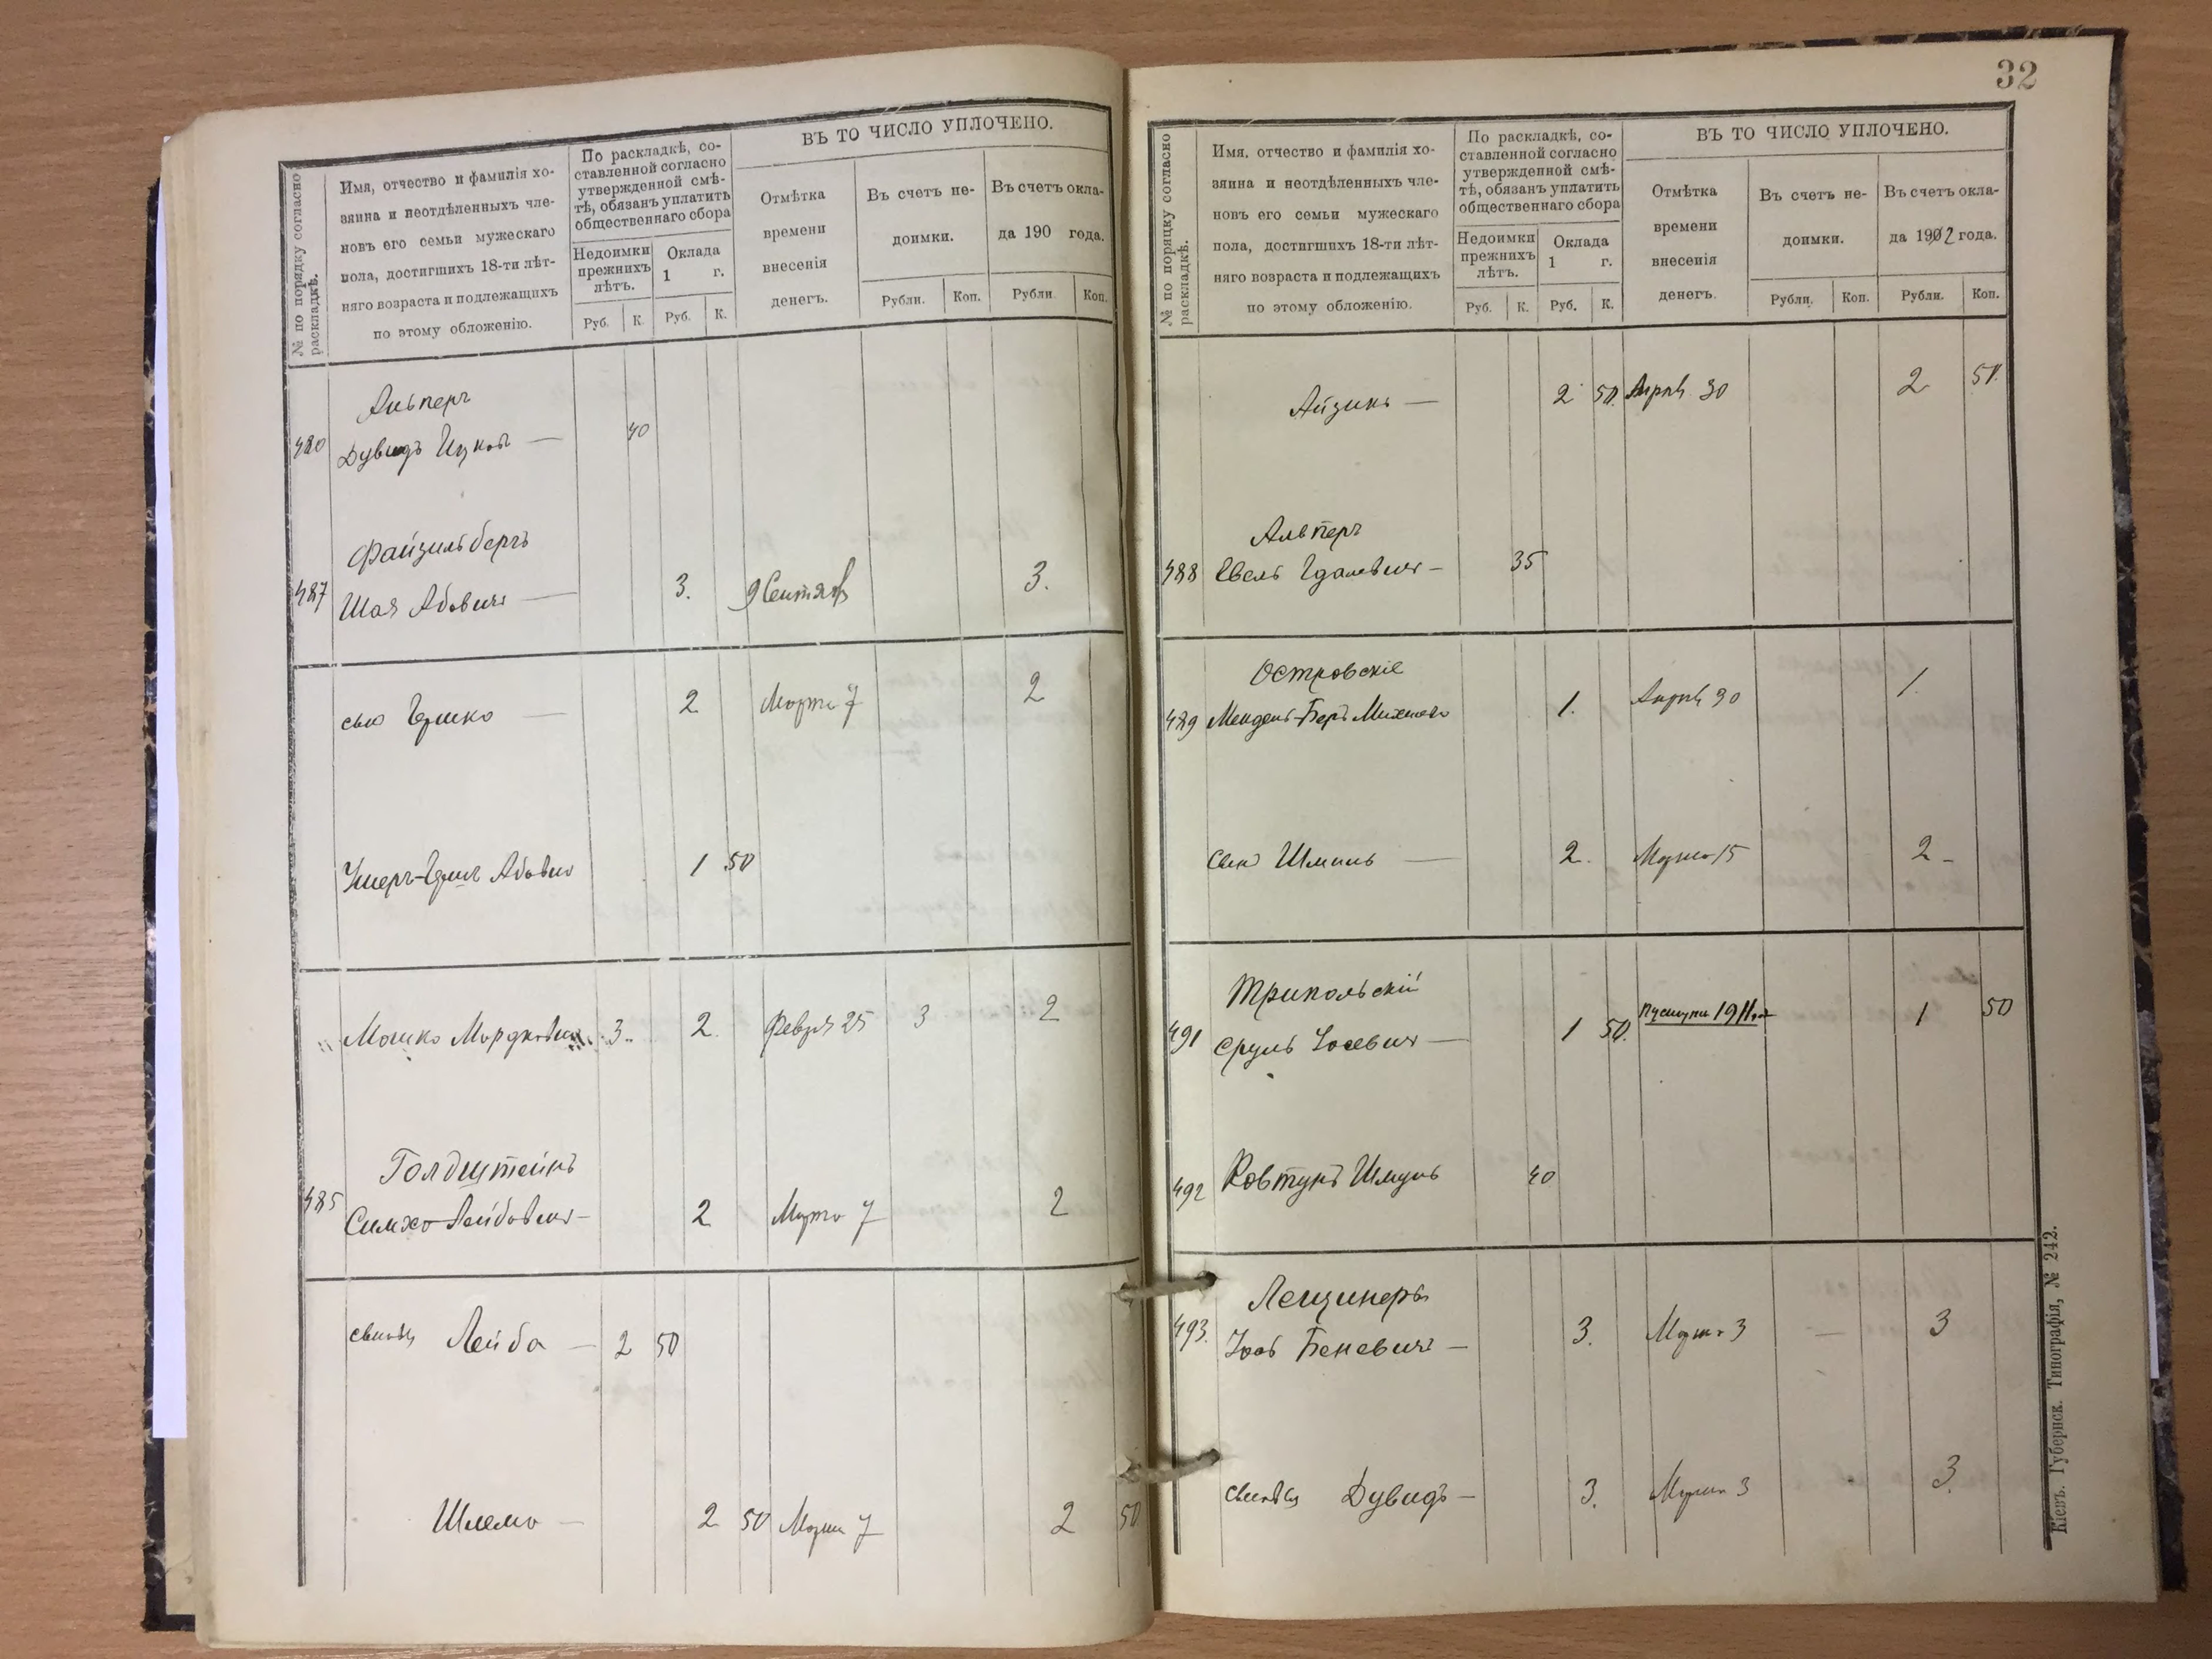 № по порядку согласно
раскладкѣ.
Имя, отчество и фамилія хо-
зяина и неотдѣленныхъ чле-
новъ его семьи мужескаго
пола, достигшихъ 18-ти лѣт-
няго возраста и подлежащихъ
по этому обложенію.
По раскладкѣ, со-
ставленной согласно
утвержденной смѣ-
тѣ, обязанъ уплатить
общественнаго сбора
Недоимки
прежнихъ
лѣтъ.
Оклада
1 г.
Руб. К. Руб. К.
ВЪ ТО ЧИСЛО УПЛОЧЕНО.
Отмѣтка
времени
внесенія
денегъ.
Въ счетъ не-
доимки.
Рубли. Коп.
Въ счетъ окла-
да 190 года.
Рубли Коп.
Альперъ
480 Дувидъ Ицков — 40
Файзильбергъ
487 Шая Абовичъ — 3. 9 Сентяб 3.
сынъ Гершко — 2 Марта 7 2
Ушеръ-Гершъ Абовичъ 1 50
" Мошко Мордковичъ 3. 2. Февр 25 3 2
Голдштейнъ
485 Симхо Лейбовичъ — 2 Марта 7 2
сыновья Лейба — 2 50
Шлема — 2 50 Марта 7 2 50
32
№ по порядку согласно
раскладкѣ.
Имя, отчество и фамилія хо-
зяина и неотдѣленныхъ чле-
новъ его семьи мужескаго
пола, достигшихъ 18-ти лѣт-
няго возраста и подлежащихъ
по этому обложенію.
По раскладкѣ, со-
ставленной согласно
утвержденной смѣ-
тѣ, обязанъ уплатить
общественнаго сбора
Недоимки
прежнихъ
лѣтъ.
Оклада
1 г.
Руб. К. Руб. К.
ВЪ ТО ЧИСЛО УПЛОЧЕНО.
Отмѣтка
времени
внесенія
денегъ.
Въ счетъ не-
доимки.
Рубли. Коп.
Въ счетъ окла-
да 1902 года.
Рубли. Коп.
Айзикъ — 2 50. Апрѣ 30 2 50.
Альперъ
488 Евель Гдалевичъ — 35
Островскіе
489 Мендель-Беръ 1. Апрѣ 30 1.
сынъ Шмиль — 2. Марта 15 2 -
Трипольскій
491 Сруль Іосевичъ — 1 50. 1911 1 50
492 Ковтунъ Шмуль 40
Лещинеръ
493. Іось Беневичъ — 3. Марта 3 — 3
сыновья Дувидъ — 3. Марта 3 3.
Кіевъ. Губернск. Типографія, № 242.